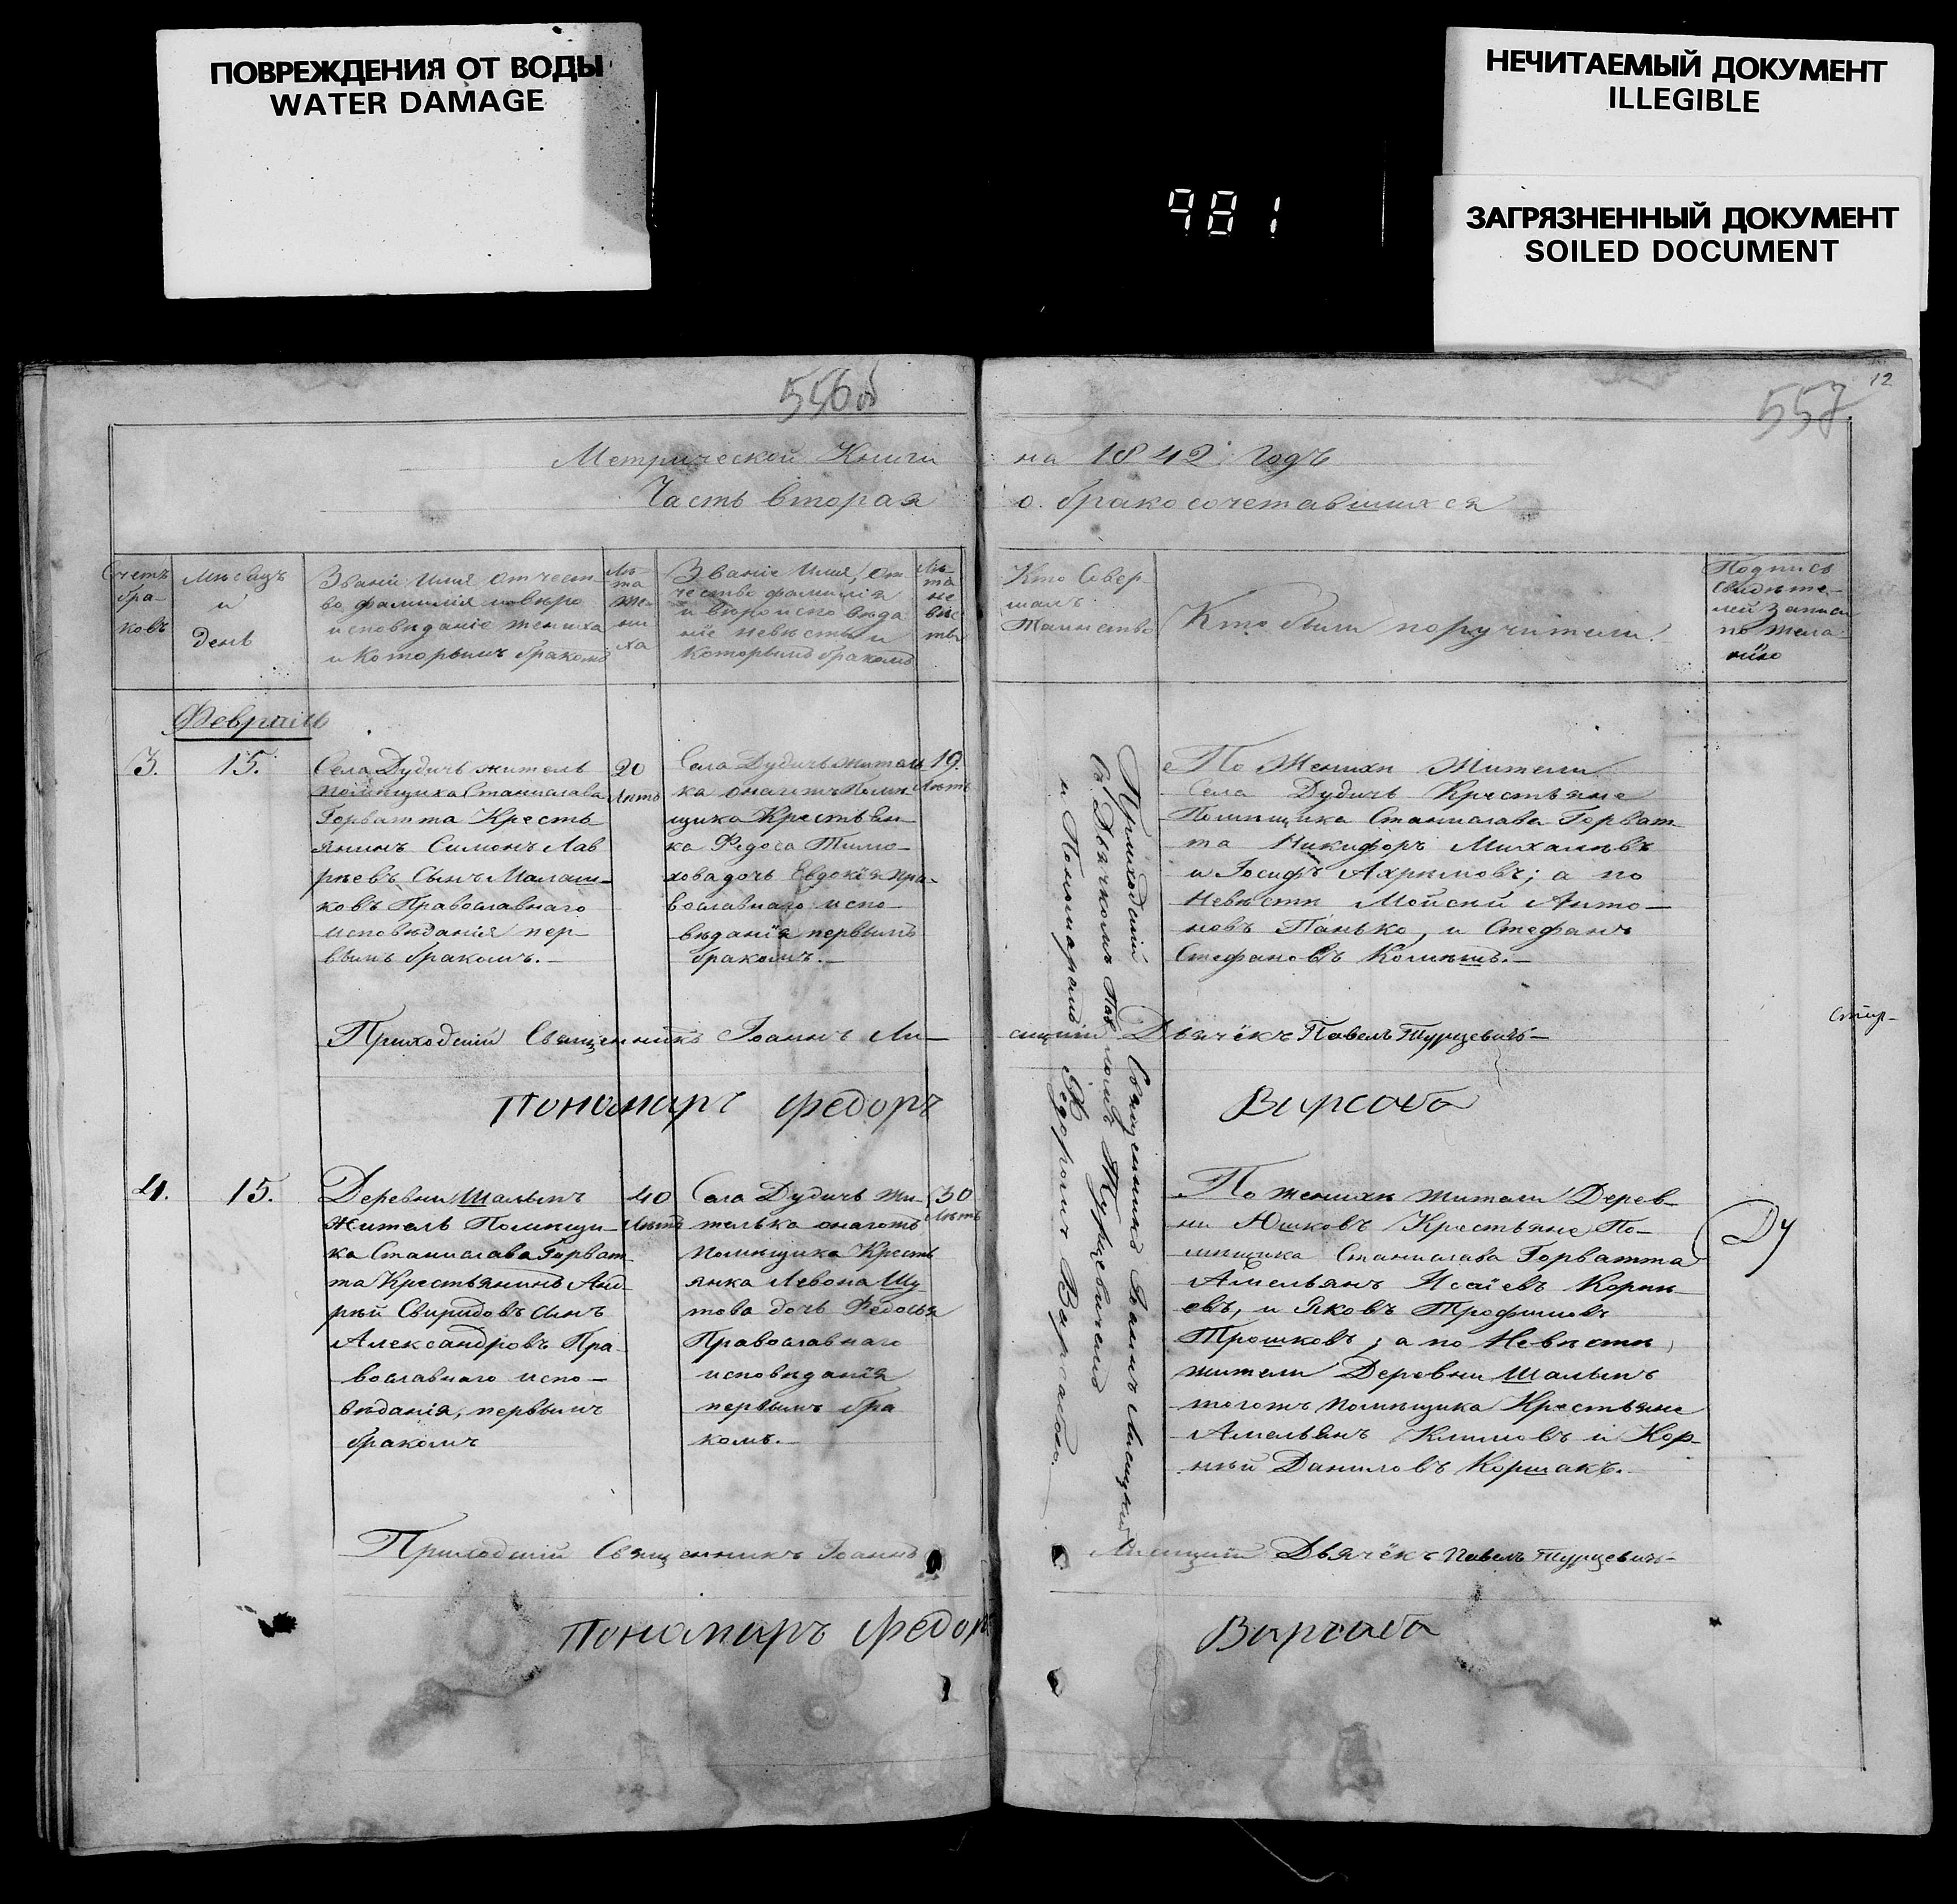 ПОВРЕЖДЕНИЯ ОТ ВОДЫ
WATER DAMAGE
НЕЧИТАЕМЫЙ ДОКУМЕНТ
ILLEGIBLE
981
ЗАГРЯЗНЕННЫЙ ДОКУМЕНТ
SOILED DOCUMENT
556 об
557
12
Метрической Книги на 1842 годъ
Часть вторая о бракосочетавшихся
Счетъ
бра-
ковъ
Мѣсяцъ
и
день
Званіе Имя отчест-
во фамилія и вѣро
исповѣданіе жениха
и которымъ бракомъ
Лѣ-
та
же-
ни
ха
Званіе Имя, от
чество фамилія
и вѣроисповѣда
ніе невѣсты и
которымъ бракомъ
Лѣ-
та
не
вѣс
ты
Кто совер-
шалъ
Таинство
Кто были поручители.
Подпись
свидѣте-
лей записи
по жела-
нію
Февраль
3.
15.
Села Дудичь житель
помѣщика Станислава
Горватта Кресть
янинъ Симонъ Лав
рѣевъ Сынъ Малаш-
ковъ Православнаго
исповѣданія пер-
вымъ бракомъ.-
20
Лѣтъ
Села Дудичь жител
ка онагожъ Помѣ
щика Крестьян-
ка Федоса Тимо-
хова дочь Евдокія пра-
вославнаго испо-
вѣданія первымъ
бракомъ.-
19.
Лѣтъ
Приходскій Священникъ Іоаннъ Лисицкій
съ Дьячкомъ Павломъ Турцевичемъ
и Пономаремъ Федоромъ Варсавою.
По Женихѣ Жители
Села Дудичь Крестьяне
Помѣщика Станислава Горват-
та Никифоръ Михалевъ
и Іосифъ Ахремовъ; а по
Невѣстѣ Мойсей Анто-
новъ Панько, и Стефанъ
Стефановъ
Приходскій Священникъ Іоаннъ Ли-
сицкій Дьячёкъ Павелъ Турцевичъ-
Пономарь Федоръ Варсава
4.
15.
Деревни Шалыпъ
житель Помѣщи-
ка Станислава Горват
та Крестьянинъ Анд-
рѣй Свиридовъ сынъ
Александровъ Пра-
вославнаго испо-
вѣданія, первымъ
бракомъ
40
Лѣтъ
Села Дудичь жи-
телька онагожъ
помѣщика Кресть
янка Левона Шу
това дочь Федосья
Православнаго
исповѣданія
первымъ бра
комъ.-
30
Лѣтъ
По женихѣ жители Дерев-
ни Юшковъ Крестьяне По-
мѣщика Станислава Горватта
Амельянъ Исаіевъ Корнѣ-
евъ, и Яковъ Трофимовъ
Трошковъ; а по Невѣстѣ
жители Деревни Шалыпъ
тогожъ помѣщика Крестьяне
Амельянъ Климовъ и Кор-
нѣй Даниловъ Коршакъ.-
Ду
Приходскій Священникъ Іоаннъ
Лисицкій Дьячёкъ Павелъ Турцевичъ-
Пономарь Федоръ Варсава